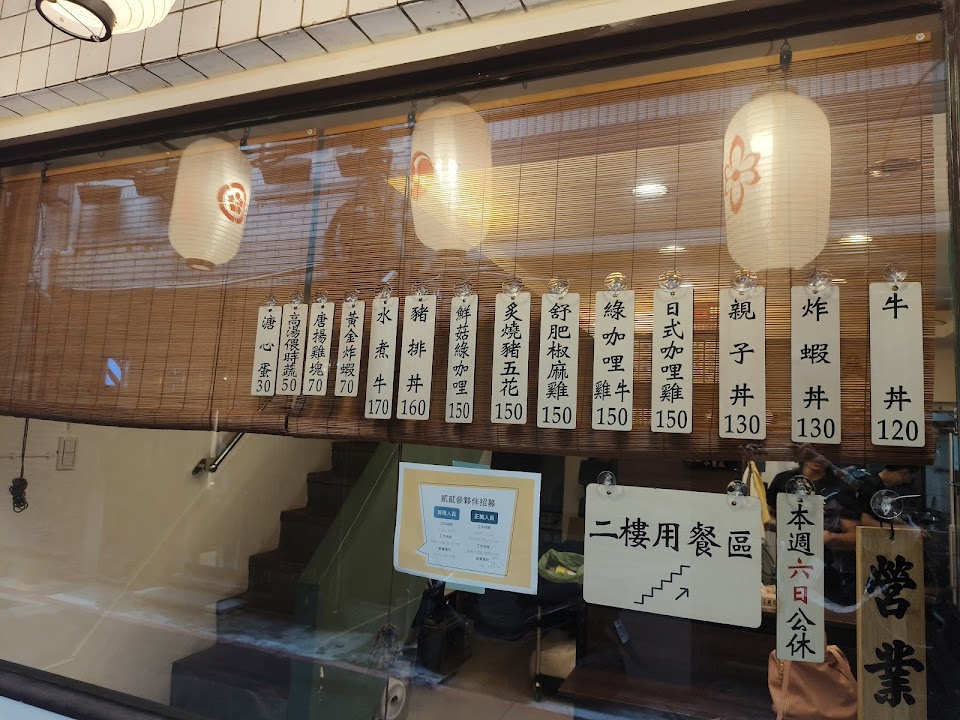 牛丼 120
炸蝦丼 130
親子丼 130
日式咖哩雞 150
綠咖哩雞牛 150
舒肥椒麻雞 150
炙燒豬五花 150
鮮菇綠咖哩 150
豬排丼 160
水煮牛 170
黃金炸蝦 70
唐揚雞塊 70
高湯偎時蔬 50
溏心蛋 30
貳貳參夥伴招募
正職人員
工作時間
工作內容
二樓用餐區
本週六日公休
營業